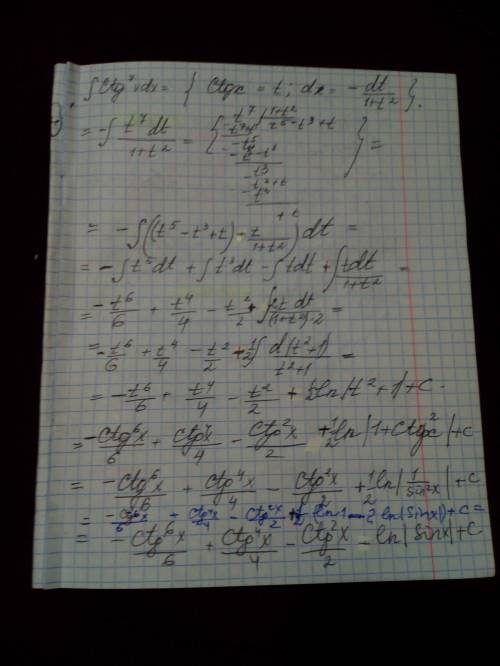 ∫ctg⁷xdx = { ctgx = t; dx = -dt/(1+t²) }.
= -∫ t⁷dt/(1+t²) = { t⁷ | 1+t² t⁵-t³+t } =
= -∫((t⁵-t³+t) - t/(1+t²))dt =
= -∫t⁵dt + ∫t³dt - ∫tdt + ∫tdt/(1+t²) =
= -t⁶/6 + t⁴/4 - t²/2 + ∫2t dt/((1+t²)·2) =
= -t⁶/6 + t⁴/4 - t²/2 + 1/2∫d(t²+1)/(t²+1) =
= -t⁶/6 + t⁴/4 - t²/2 + 1/2ln|t²+1|+C.
= -ctg⁶x/6 + ctg⁴x/4 - ctg²x/2 + 1/2ln|1+ctgx²|+C
= -ctg⁶x/6 + ctg⁴x/4 - ctg²x/2 + 1/2ln|1/sin²x|+C
= -ctg⁶x/6 - ctg⁴x/4 - ctg²x/2 + 1/2 ln1 - 2 ln|sinx|)+C =
= -ctg⁶x/6 + ctg⁴x/4 - ctg²x/2 - ln|sinx|+C